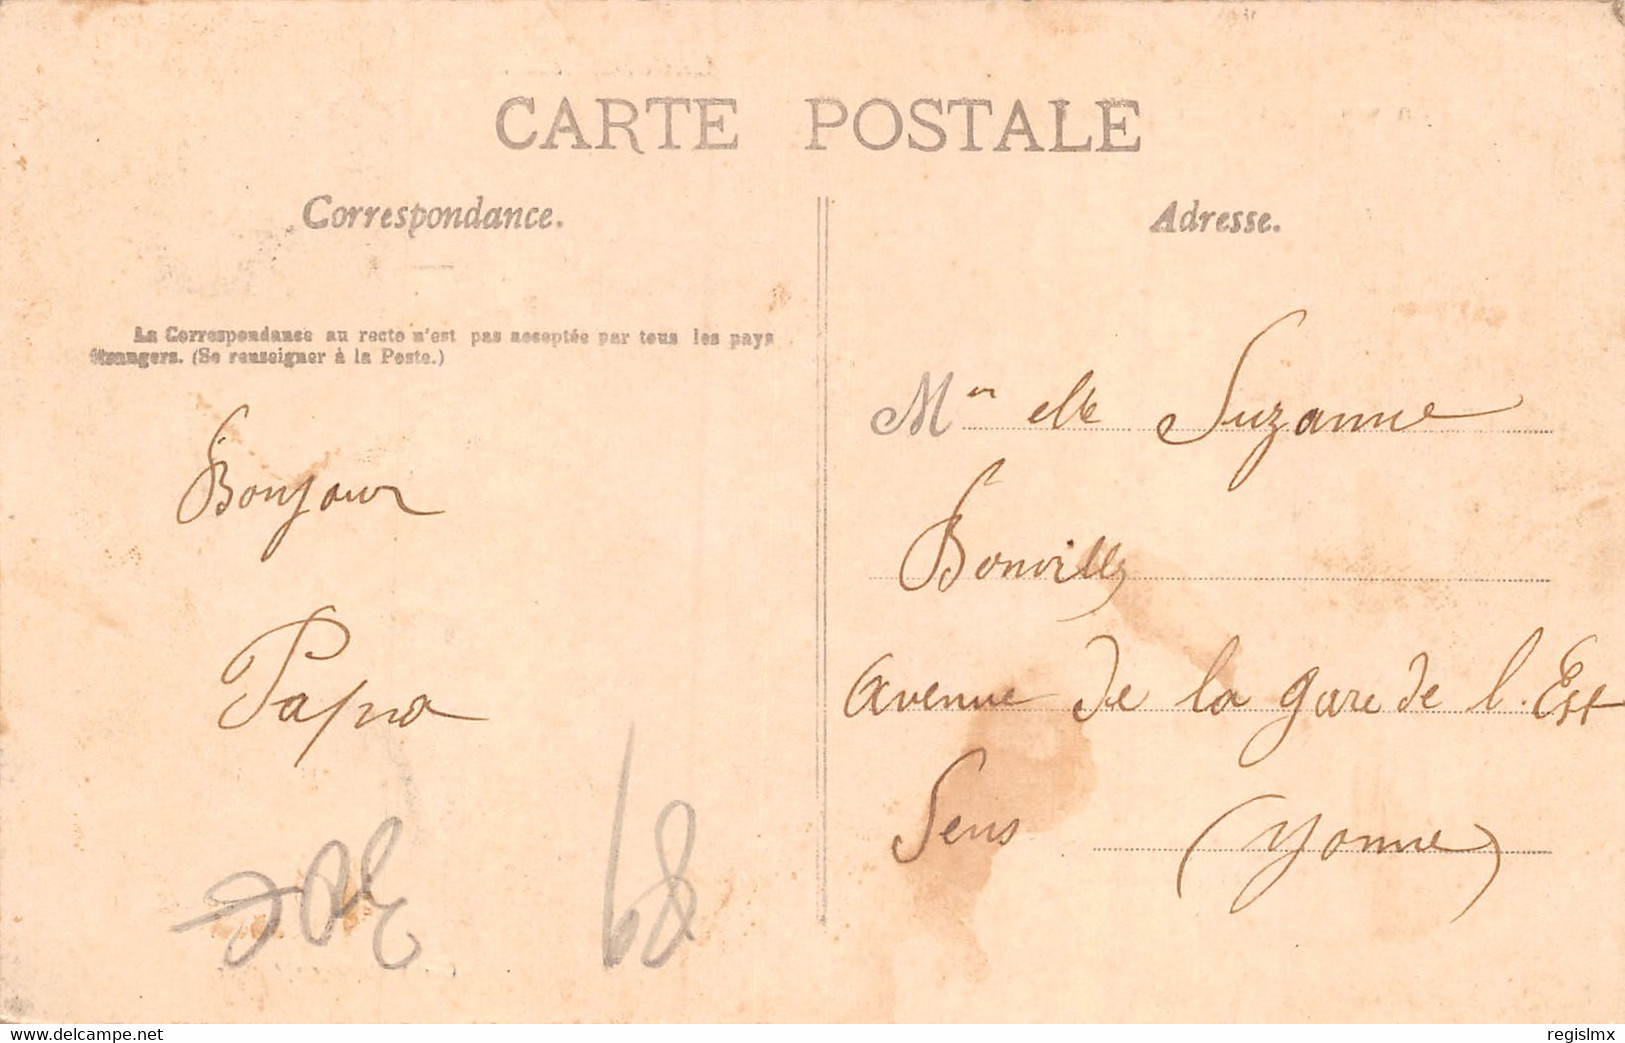 CARTE POSTALE
Correspondance.
La Correspondance au recto n'est pas acceptée par tous les pays
étrangers. (Se renseigner à la Poste.)
Bonjour
Papa
68
Adresse.
M elle Suzanne
Bonville
Avenue de la gare de l'Est
Sens (Yonne)
delcampe.net
regislmx